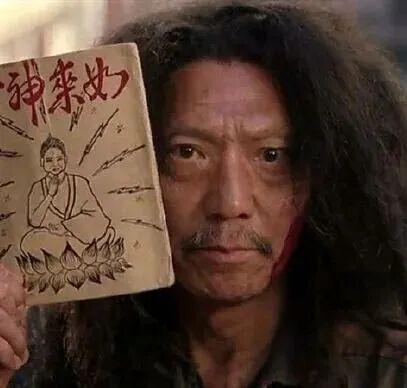 如來神